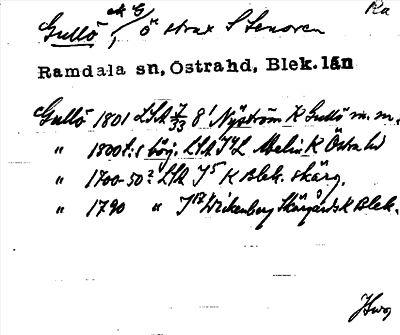 Ra
Gullö, ö strax S Senoren
Ramdala sn, Östrahd, Blek. län
Gullö 1801 LSA 7/33 8¹ Nyström K Gullö m. m.
" 1800 t. s börj. LSA Melin K Östra hd
" 1700-50? LSA J5 K Blek. skärg.
" 1790 " J17 Wickenberg Skärgårds K Blek.